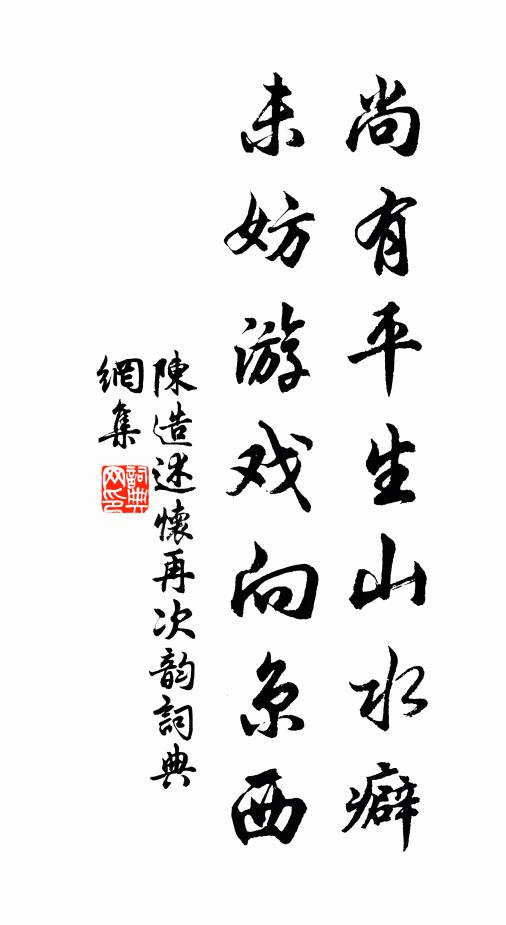 尚有平生山水癖
未妨游戏向京西
陳造述懷再次韵詞典
網集
詞典網印